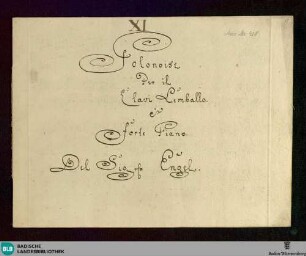 XI
Polonoise
Per il
Clavi Cemballo.
è
Forte Piano
Del Sig: Engel.
BLB BADISCHE
LANDESBIBLIOTHEK